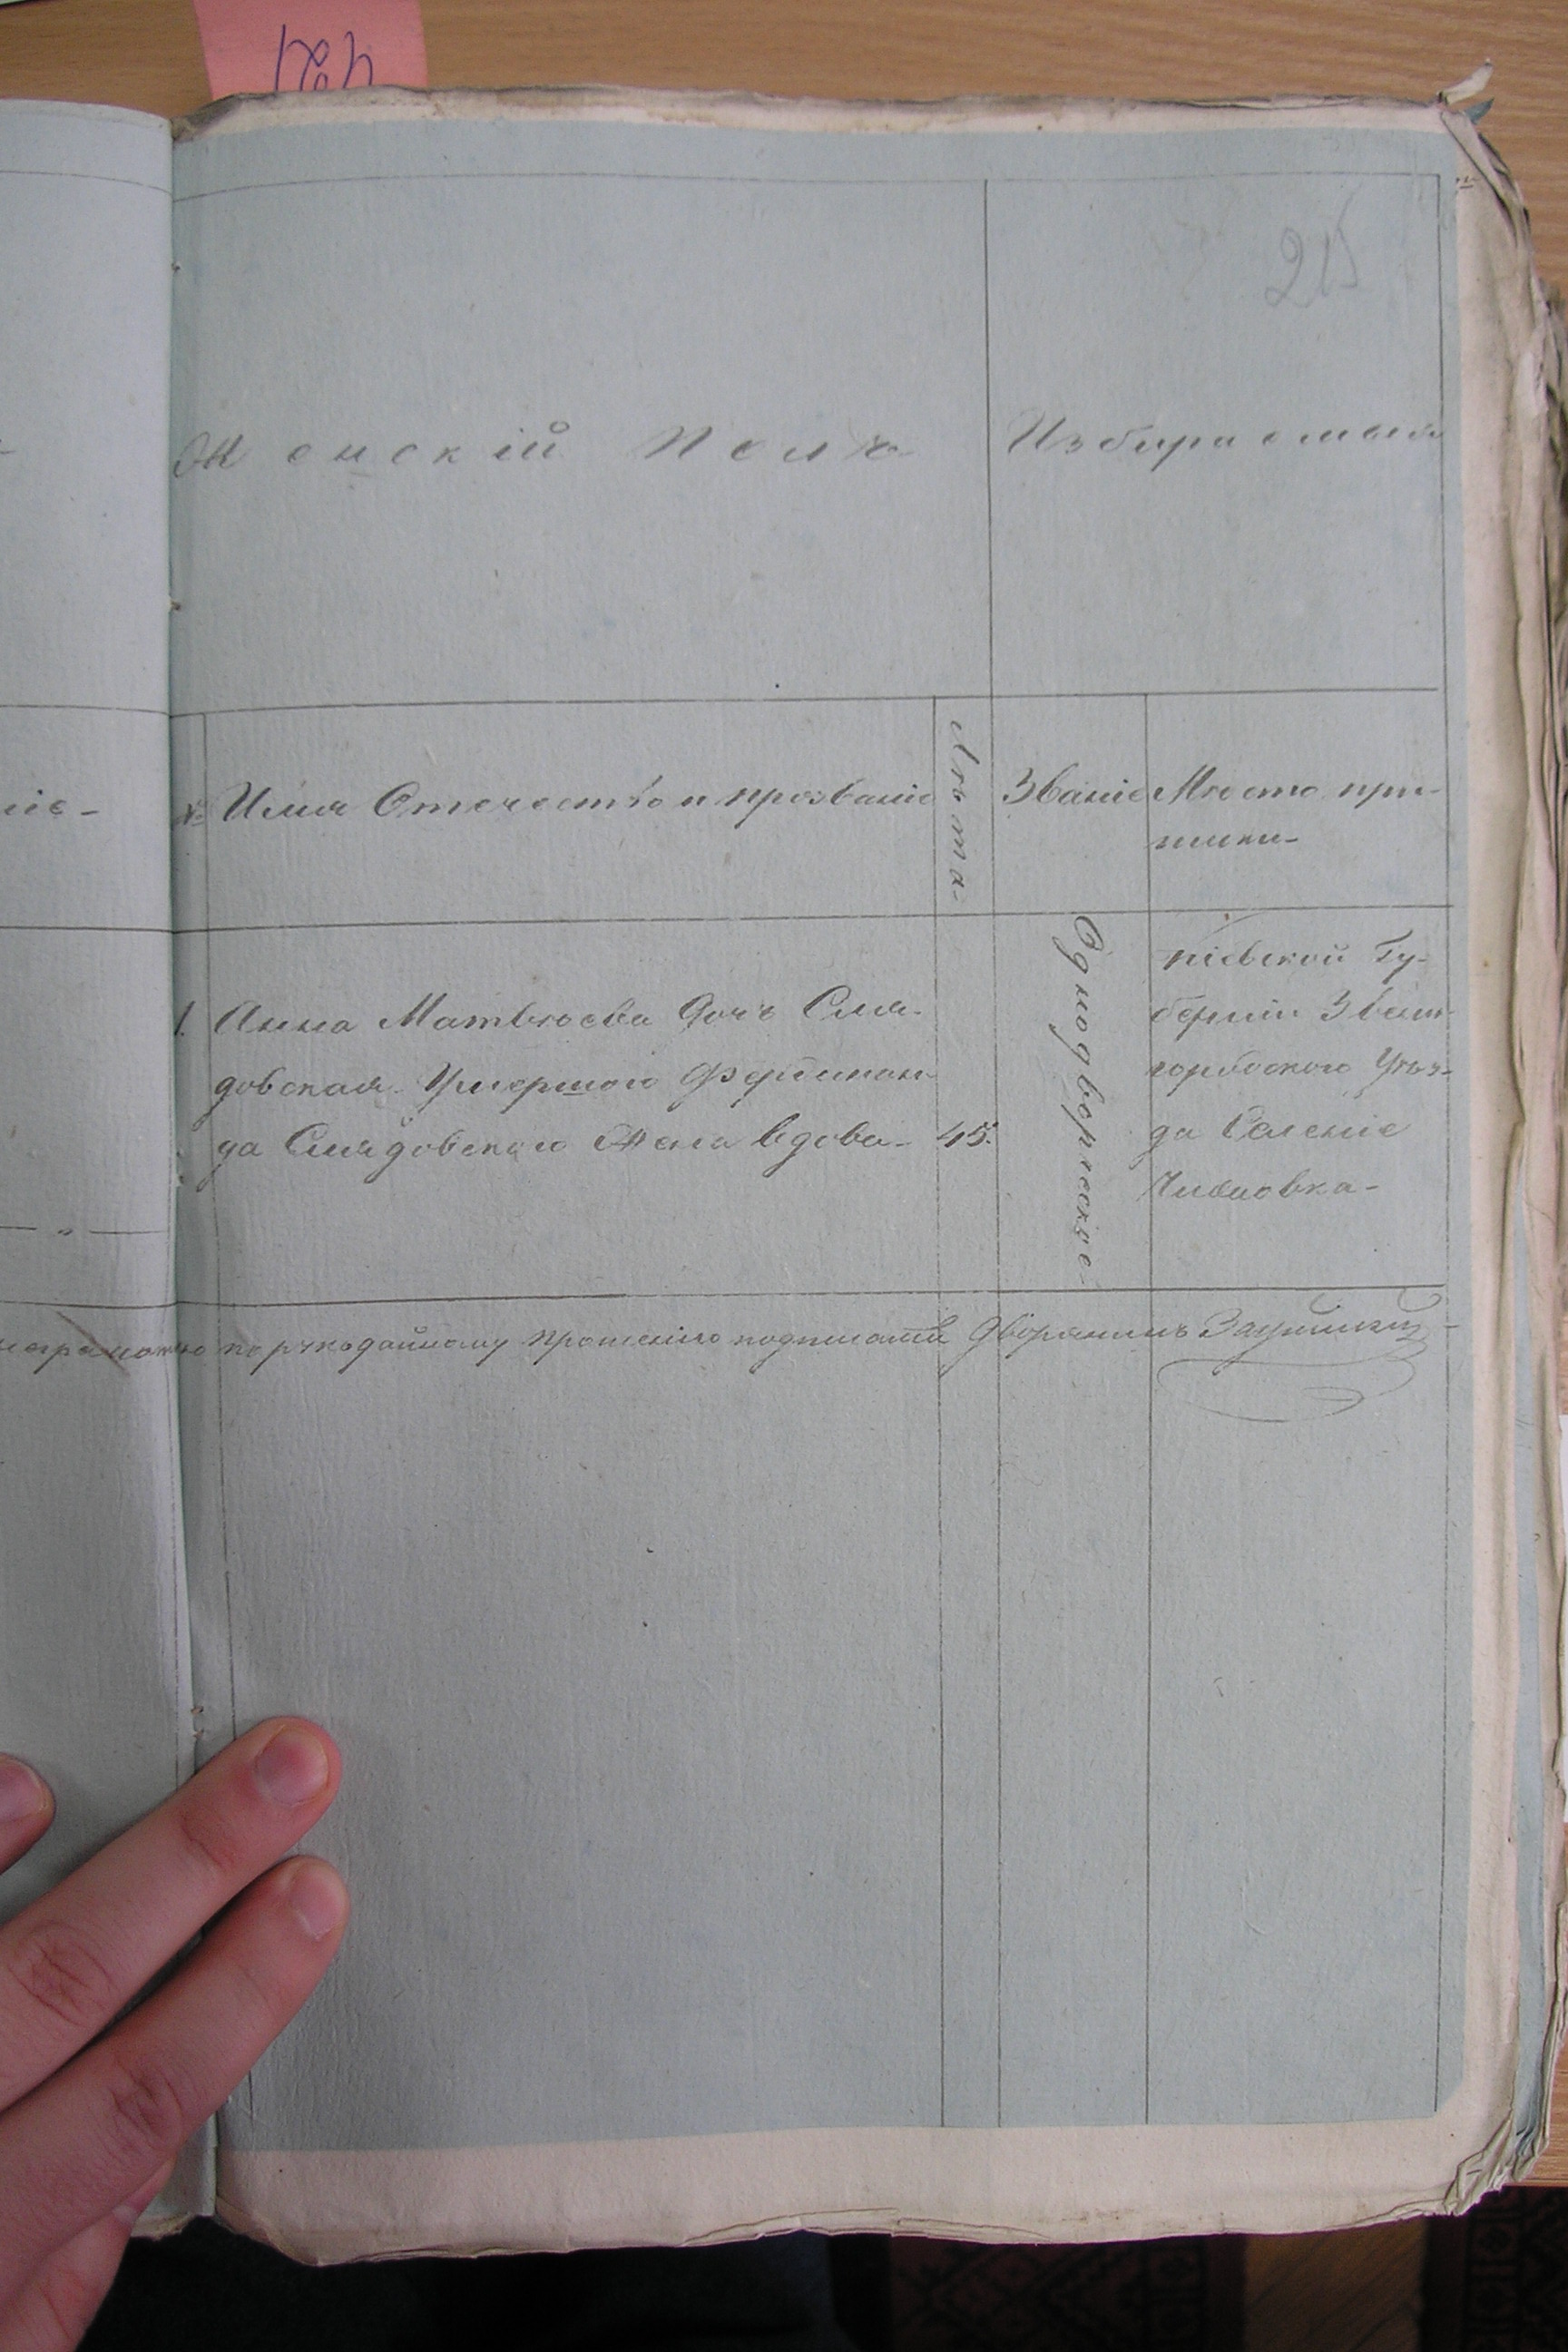 215
Женскій Полъ
Избираемые
ніе-
№
Имя Отечество и прозваніе
Лѣта-
Званіе
Мѣсто при-
писки-
1. Анна Матвѣева Дочъ Сля-
довская Умершого Фердинан-
да Слядовского Жена вдова- 45.
Однодворческое-
Кіевской Гу-
берніи Звени-
городского Уѣз-
да Селеніе
неграмотно по рукоданному прошенію подписалъ Дворянинъ